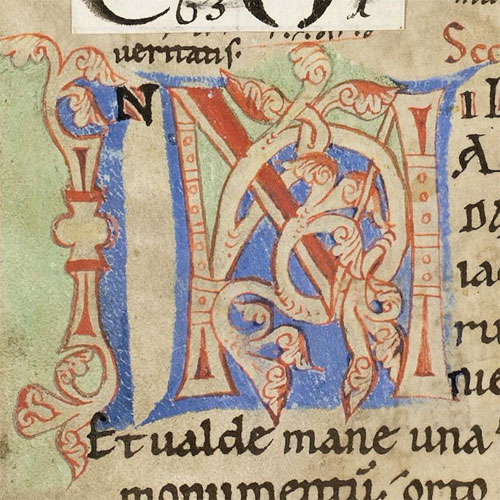 63
ueritatis:
Sec
IN IL
A
DA
ru
Et ualde mane una
monumentū, orto